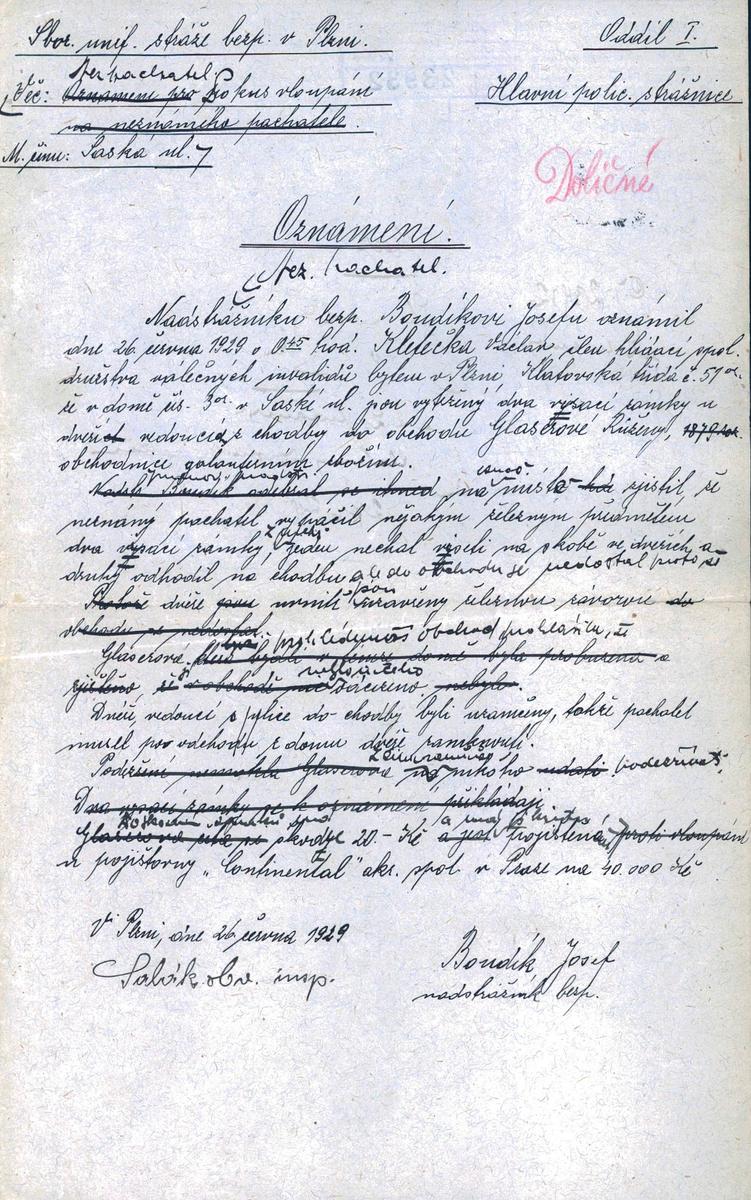 Sbor. unif. stráže bezp. v Plzni.
Oddíl I.
Nez. pachatel
Věc: Oznámení pro Pokus vloupání
Hlavní polic. strážnice
na neznámého pachatele.
M. činu: Saská ul. 7
Doličné
Oznámení.
Nez. pachatel.
Nadstrážníku bezp. Boudíkovi Josefu oznámil
dne 26. června 1929 o 0.45 hod. Kletečka Václav člen hlídací spol.
družstva válečných invalidů bytem v Plzni Klatovská třída č. 51
že v domě čís. 3 v Saské ul. jsou vytrženy dva visací zámky u
dveří vedoucí z chodby do obchodu Glaserové Růženy, 1879
obchodnice galanterním zbožím.
Nadstr. Boudík odebral se ihned na místo zjistil, že
neznámý pachatel vypáčil nějakým železným předmětem
dva visací zámky, z nichž jeden nechal viseti na skobě ve dveřích a
druhý odhodil na chodbu ale do obchodu se nedostal proto že
Protože dvéře jsou uvnitř jsou uzavřeny železnou závorou do
obchodu se nedostal.
prohlédnuvši obchod prohlásila, že
Glaserová byla probuzena a
zjištěno, že v obchodě nic odcizeno nebylo.
Dvéře vedoucí s ulice do chodby byli uzamčeny, takže pachatel
musel po odchodu z domu dvéře zamknouti.
Podezření nemohla Glaserová na nikoho udati. podezřívati.
Dva visací zámky se k oznámení přikládají.
Glaserová škodu 20.- Kč a jest pojištěna proti vloupání
u pojišťovny "Continental" akc. spol. v Praze na 40.000 Kč
V Plzni, dne 26. června 1929
Boudík Josef
Sabák obv. insp.
nadstrážník bezp.